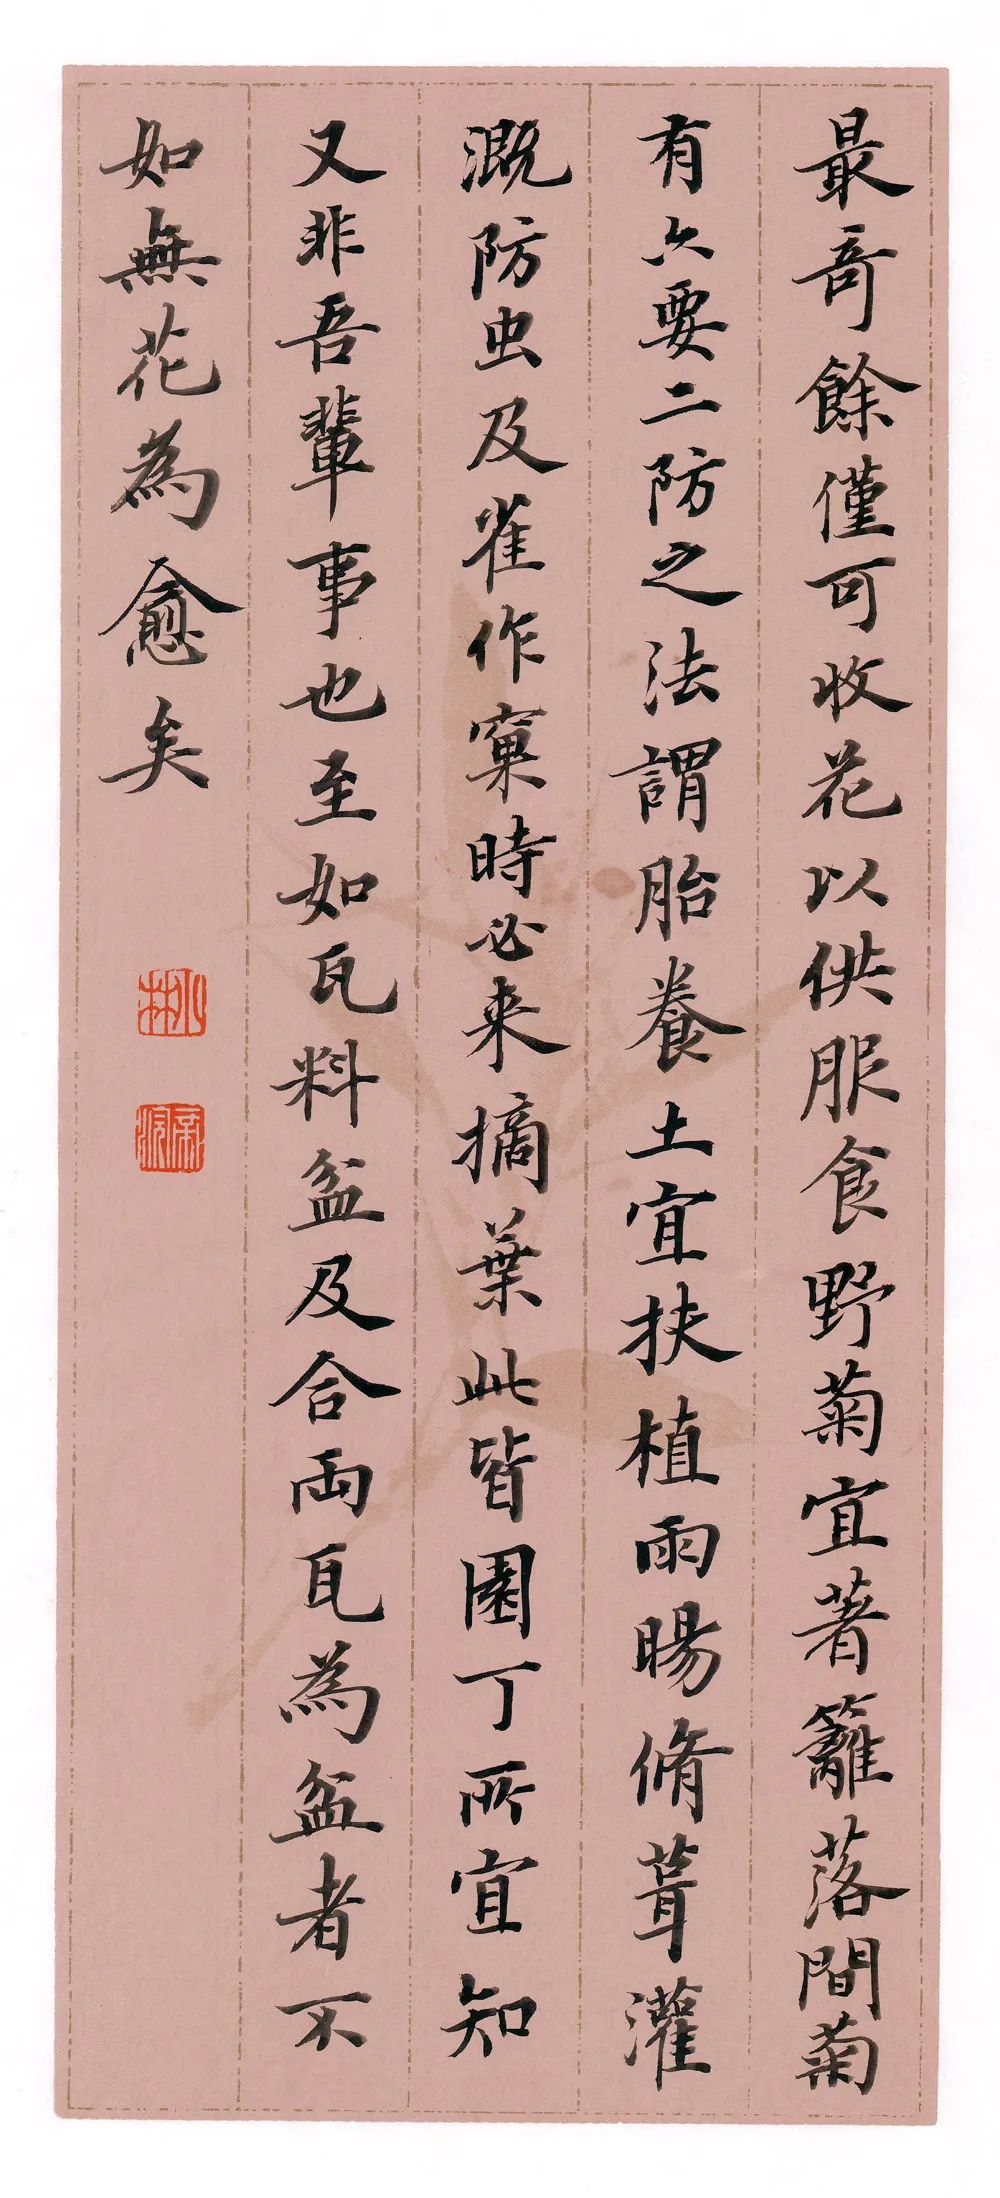 最奇餘僅可收花以供服食野菊宜著籬落間菊
有六要二防之法謂胎養土宜扶植雨暘脩葺灌
溉防虫及雀作窠時必来摘葉此皆園丁所宜知
又非吾輩事也至如瓦料盆及合兩瓦為盆者不
如無花為愈矣